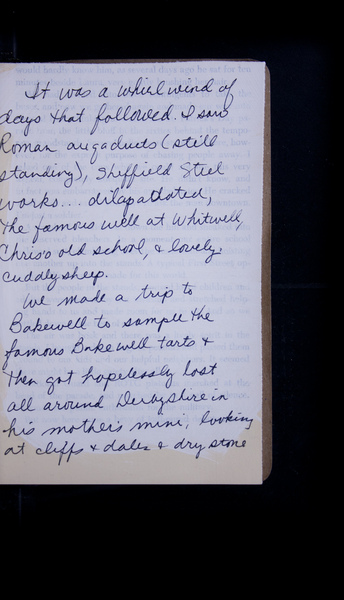 It was a whirlwind of
days that followed. I saw
Roman auqaducts (still
standing), Sheffield Steel
works... dilapatated,
the famous well at Whitwell,
Chris's old school, & lovely
cuddly sheep.
We made a trip to
Bakewell to sample the
famous Bakewell tarts &
then got hopelessly lost
all around Derbyshire in
his mother's mini, looking
at cliffs & dales & dry stone